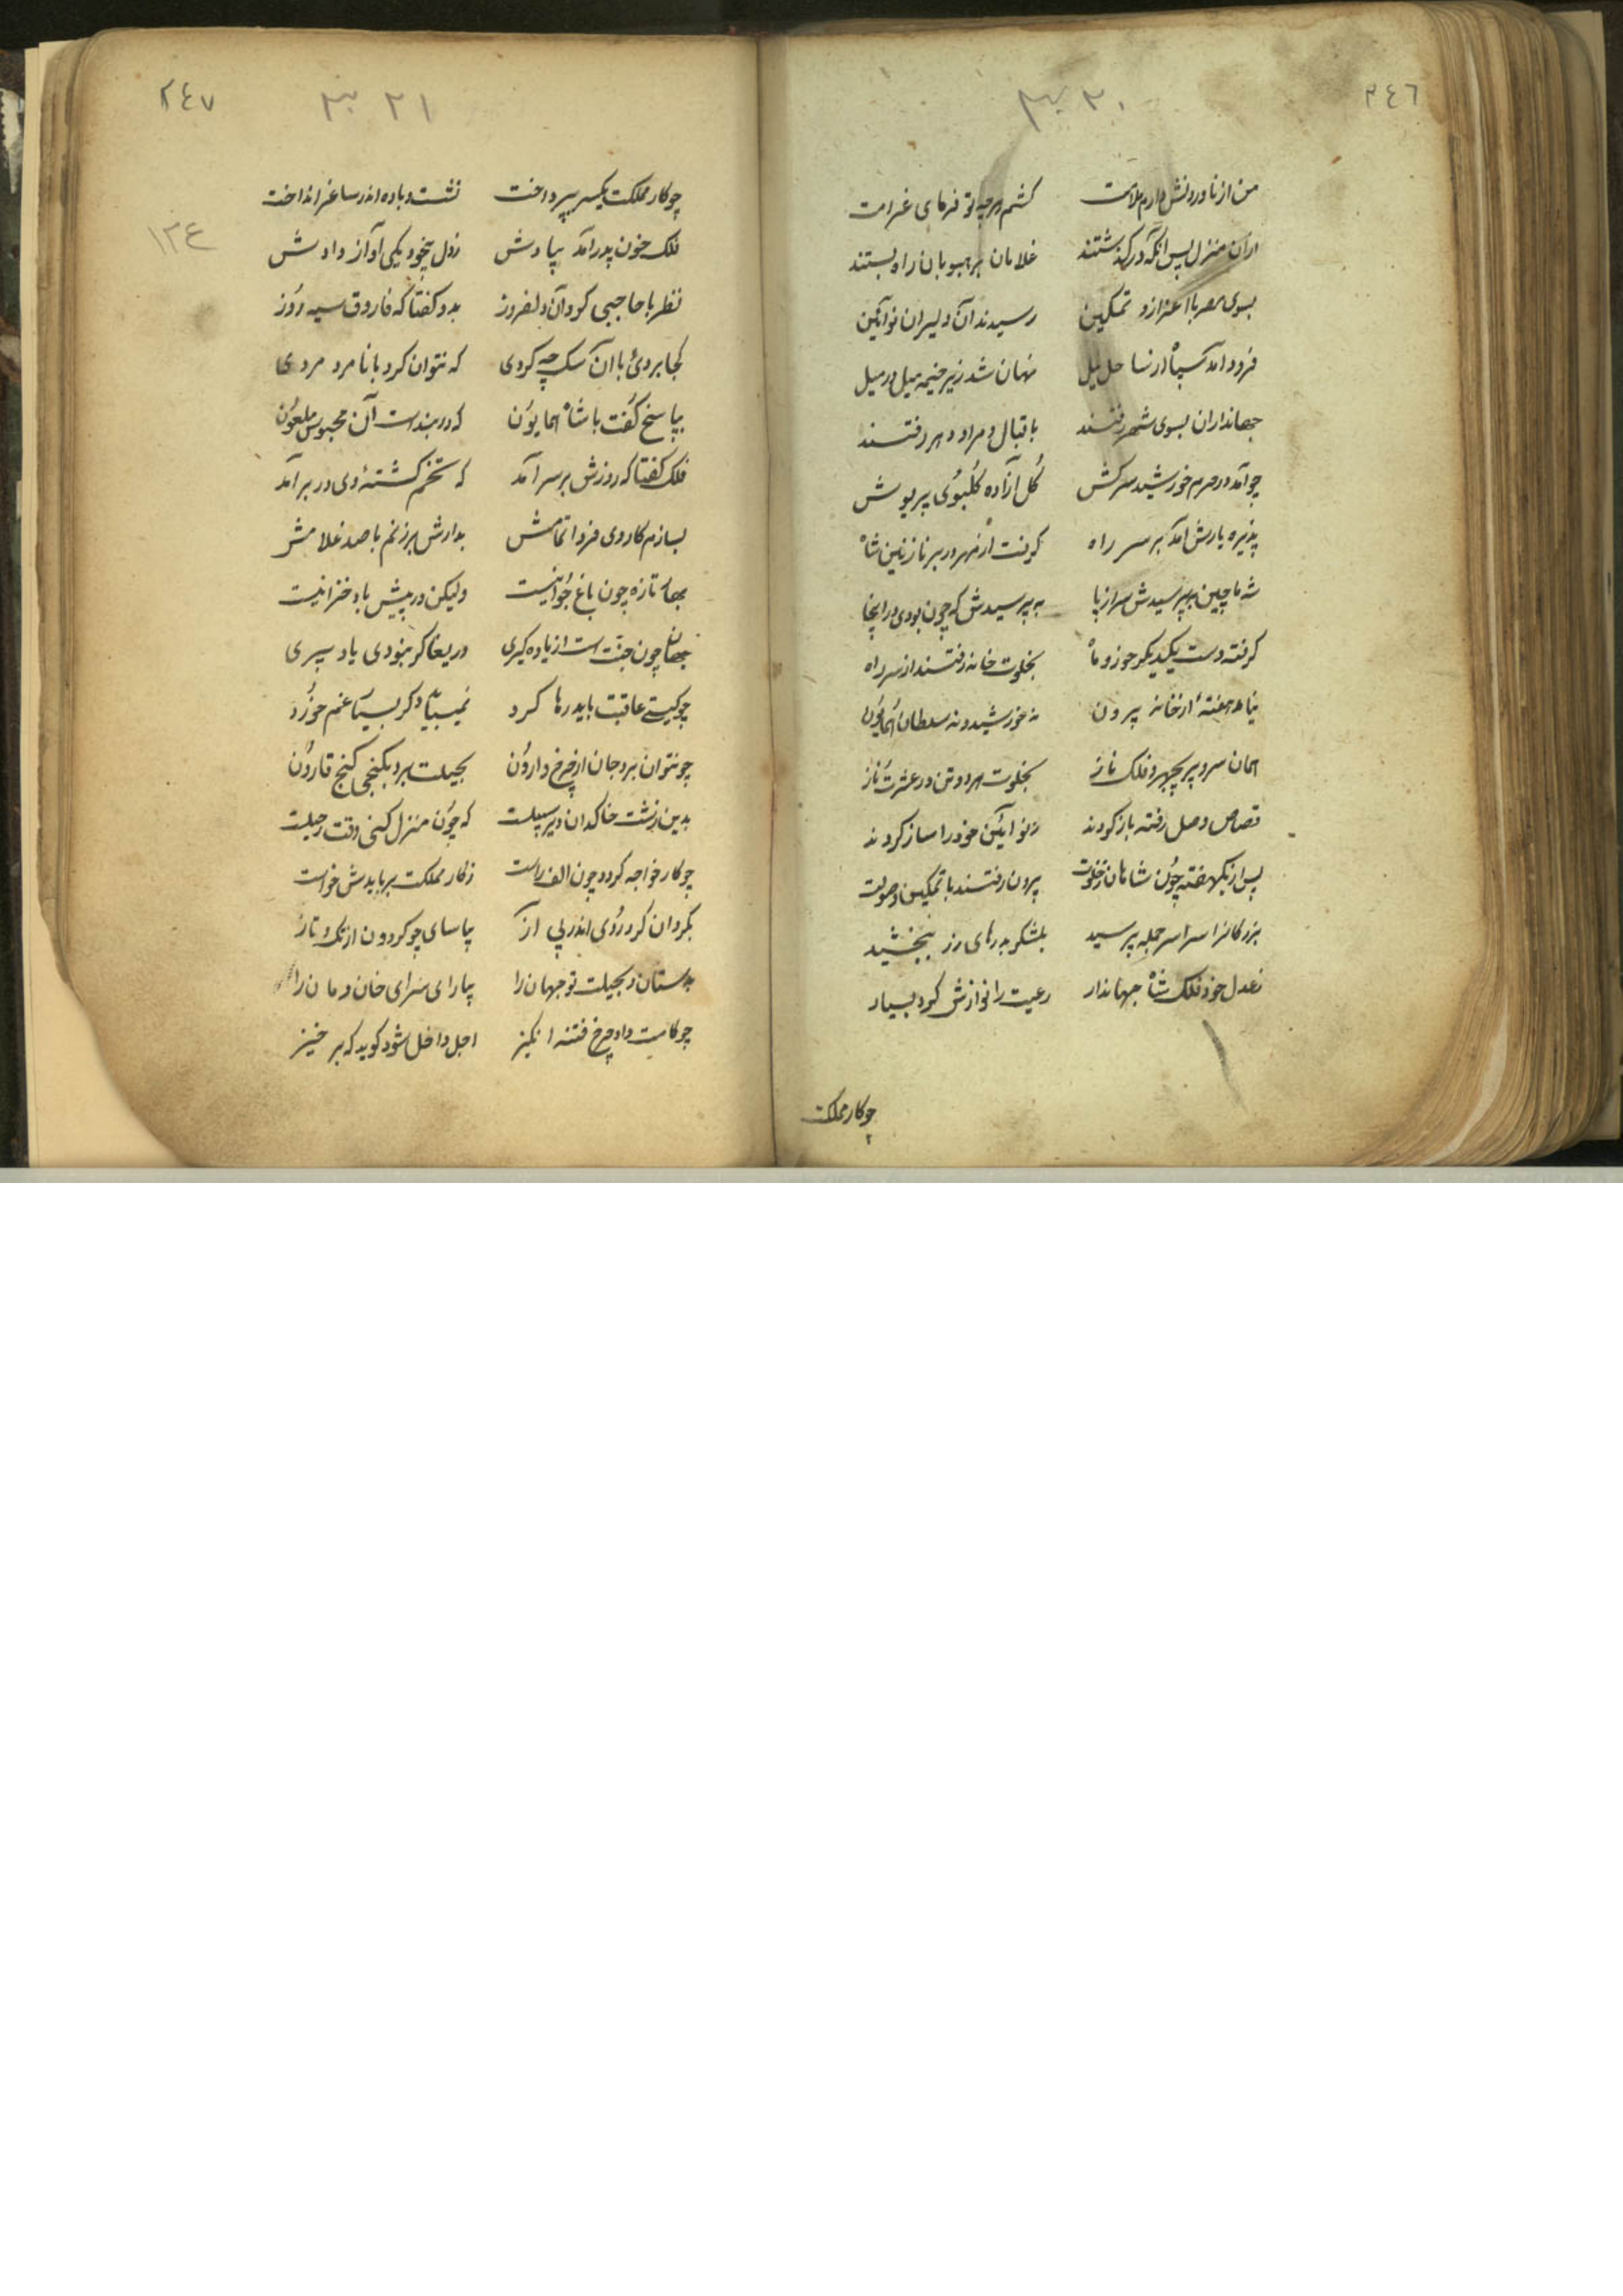 ٢٤٦
٣٠
من از ناوردنش دارم ملامت کشم هرچه تو فرمای غرامت
از آن منزل پس آنگه درگذشتند غلامان بر هیوبان راه بستند
بسوی مصر با اعزاز و تمکین رسیدند آن دلیران نوآئین
فرود آمد سپاه از ساحل نیل نهان شد زیر خیمه میل در میل
جهانداران بسوی شهر رفتند باقبال و مراد و بهر رفتند
چو آمد در حرم خورشید سرکش گل آزاده گلبوی پریوش
پذیره یارش آمد بر سر راه گرفت از مهر در بر نازنین شاه
شه ماچین بپرسیدش سراپا به پرسیدش که چون بودی در اینجا
گرفته دست یکدیگر خور و ماه بخلوت خانه رفتند از سر راه
نیامد هفتهٔ از خانه بیرون نه خورشید و نه سلطان همایون
همان سرو پریچهر و فلک ناز بخلوت هر دو تن در عشرت و ناز
قصاص وصل رفته باز کردند ز نو آئین خود را ساز کردند
پس از یکهفته چون شاهان ز خلوت برون رفتند با تمکین و صولت
بزرگانرا سراسر جمله پرسید بلشکر بدرهای زر ببخشید
ز عدل خود فلک شاه جهاندار رعیت را نوازش کرد بسیار
چو کار مملکت
٢٤٧
٢١
١٢٤
چو کار مملکت یکسر بپرداخت نشست و باده اندر ساغر انداخت
فلک خون پدر آمد بیادش ز دل بیخود یکی آواز دادش
نظر با حاجبی کرد آن دلفروز بدو گفتا که فاروق سیه روز
کجا بردی با آن سک چه کردی که نتوان کرد با نامرد مردی
بپاسخ گفت با شاه همایون که در بند است آن محبوس ملعون
فلک گفتا که روزش بر سر آمد که تخم کشتهٔ وی در بر آمد
بسازم کار وی فردا تمامش بدارش برزنم با صد غلامش
بهار تازه چون باغ جوانیست ولیکن در پیش باد خزانیست
جهان چون جنت است از یاده کیری دریغا کر نبودی یاد پیری
چو گیتی عاقبت باید رها کرد نمیباید دگر بسیار غم خورد
چو نتوان برد جان از چرخ وارون بحیلت برد بکنجی گنج قارون
بدین زشت خاکدان دیر سپیلت که چون منزل کنی وقت رحیلت
چو کار خواجه گردد چون الف راست ز کار مملکت بر بایدش خواست
بگردان گرد روی اندر پی آز بیاسای چو گردون از تک و تاز
بدستان و بحیلت تو جهان را بیارای سرای خان و مان را
چو کامت داد چرخ فتنه انگیز اجل داخل شود گوید که بر خیز